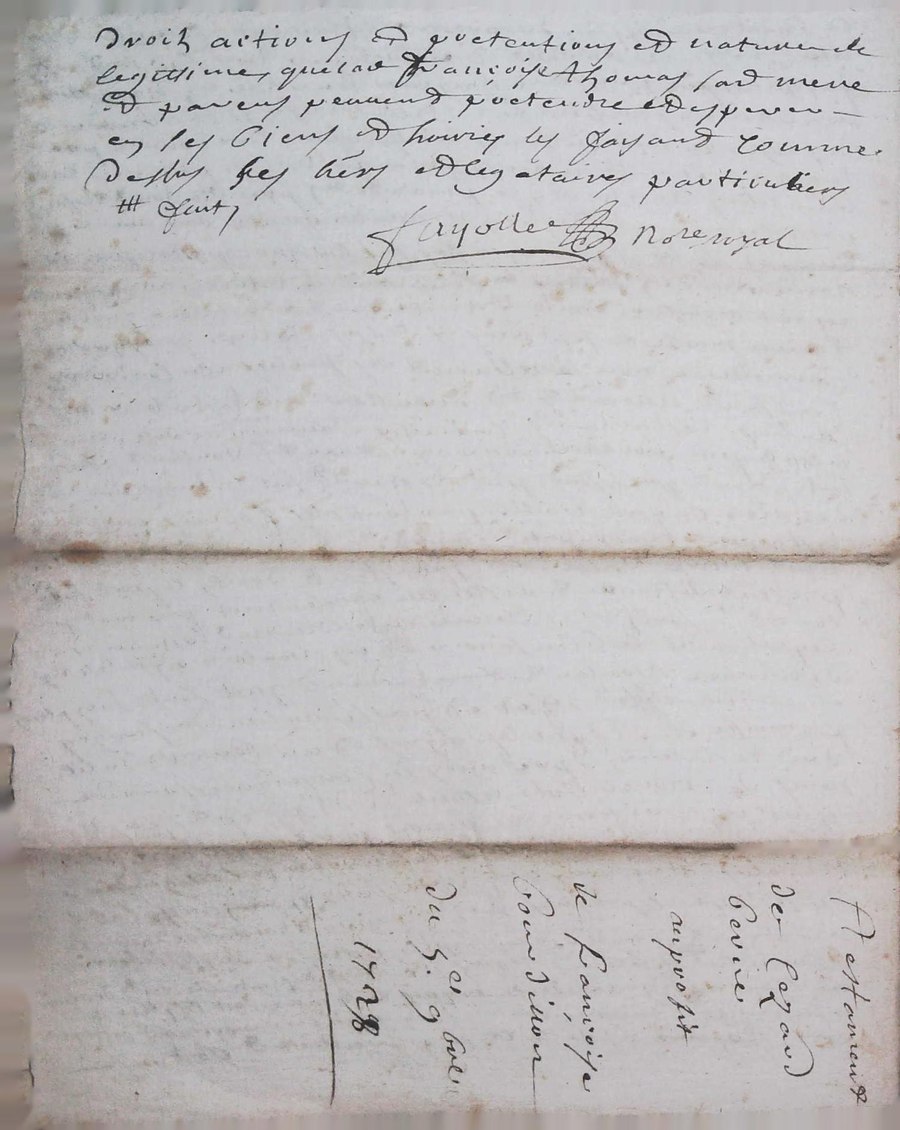 droits actions et pretentions et nature de
legitime, que lad françoise thomas sad mere
et parens peuvent pretendre et esperer
en ses biens et hoiries les faisant comme
dessus ses hers et legataires particuliers
fait,
fayolle nore royal
testament
de Cezard
au profit
de françoise
bourdillon
du 5.e 9bre
1728